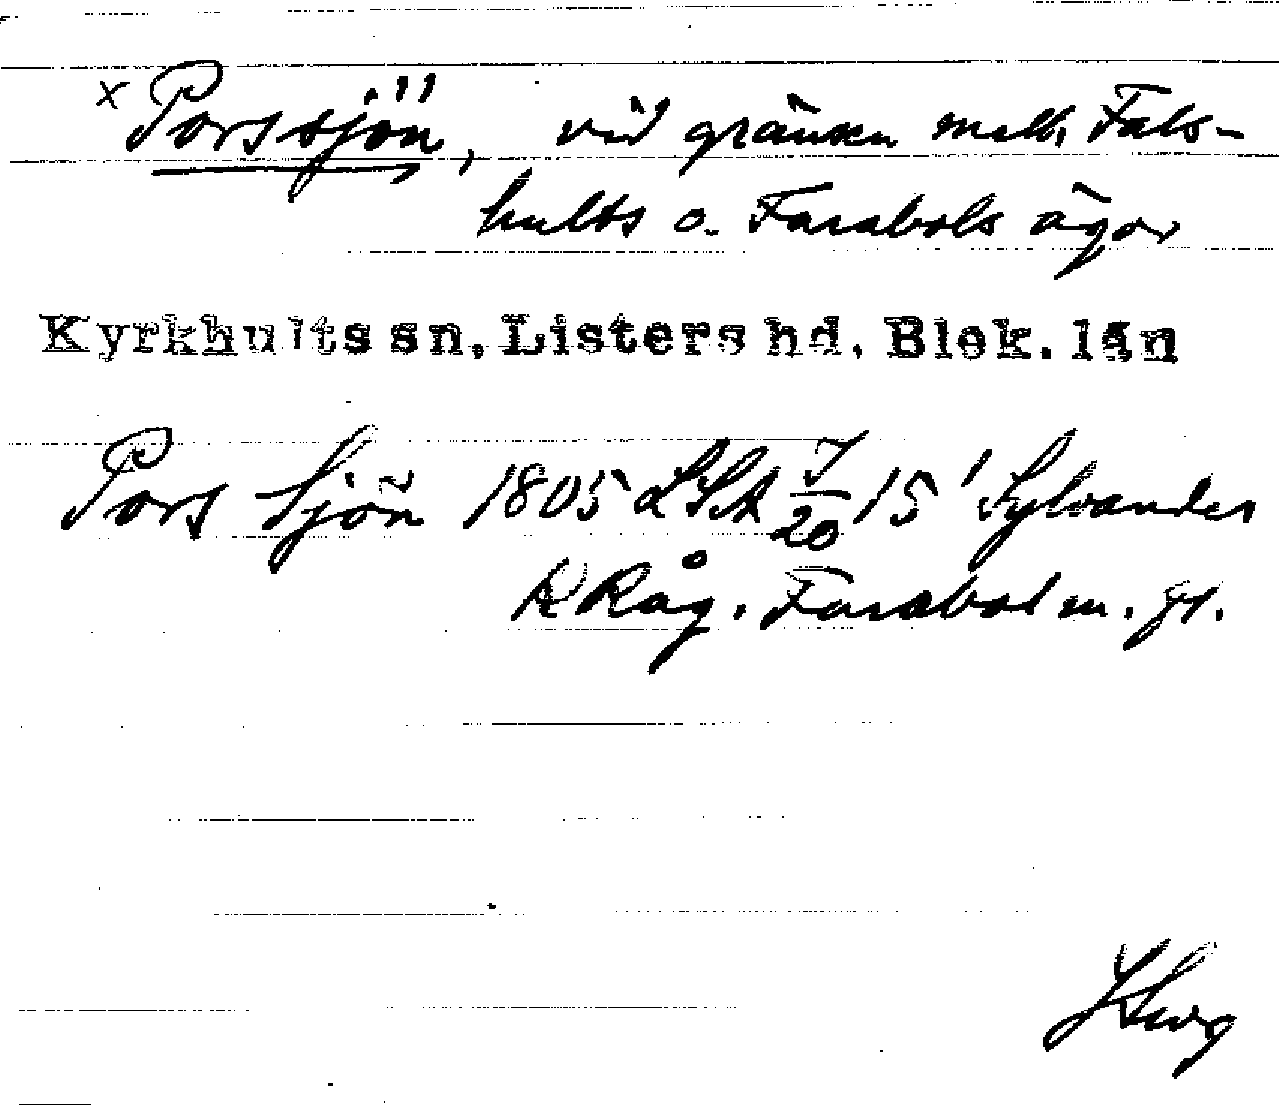 x Porssjön, vid gränsen mell. Fals-
hults o. Farabols ägor
Kyrkhults sn, Listers hd. Blek. län
Pors Sjön 1805 LSA 7/20 15' Sylvander
K Råg. Farabol m. fl.